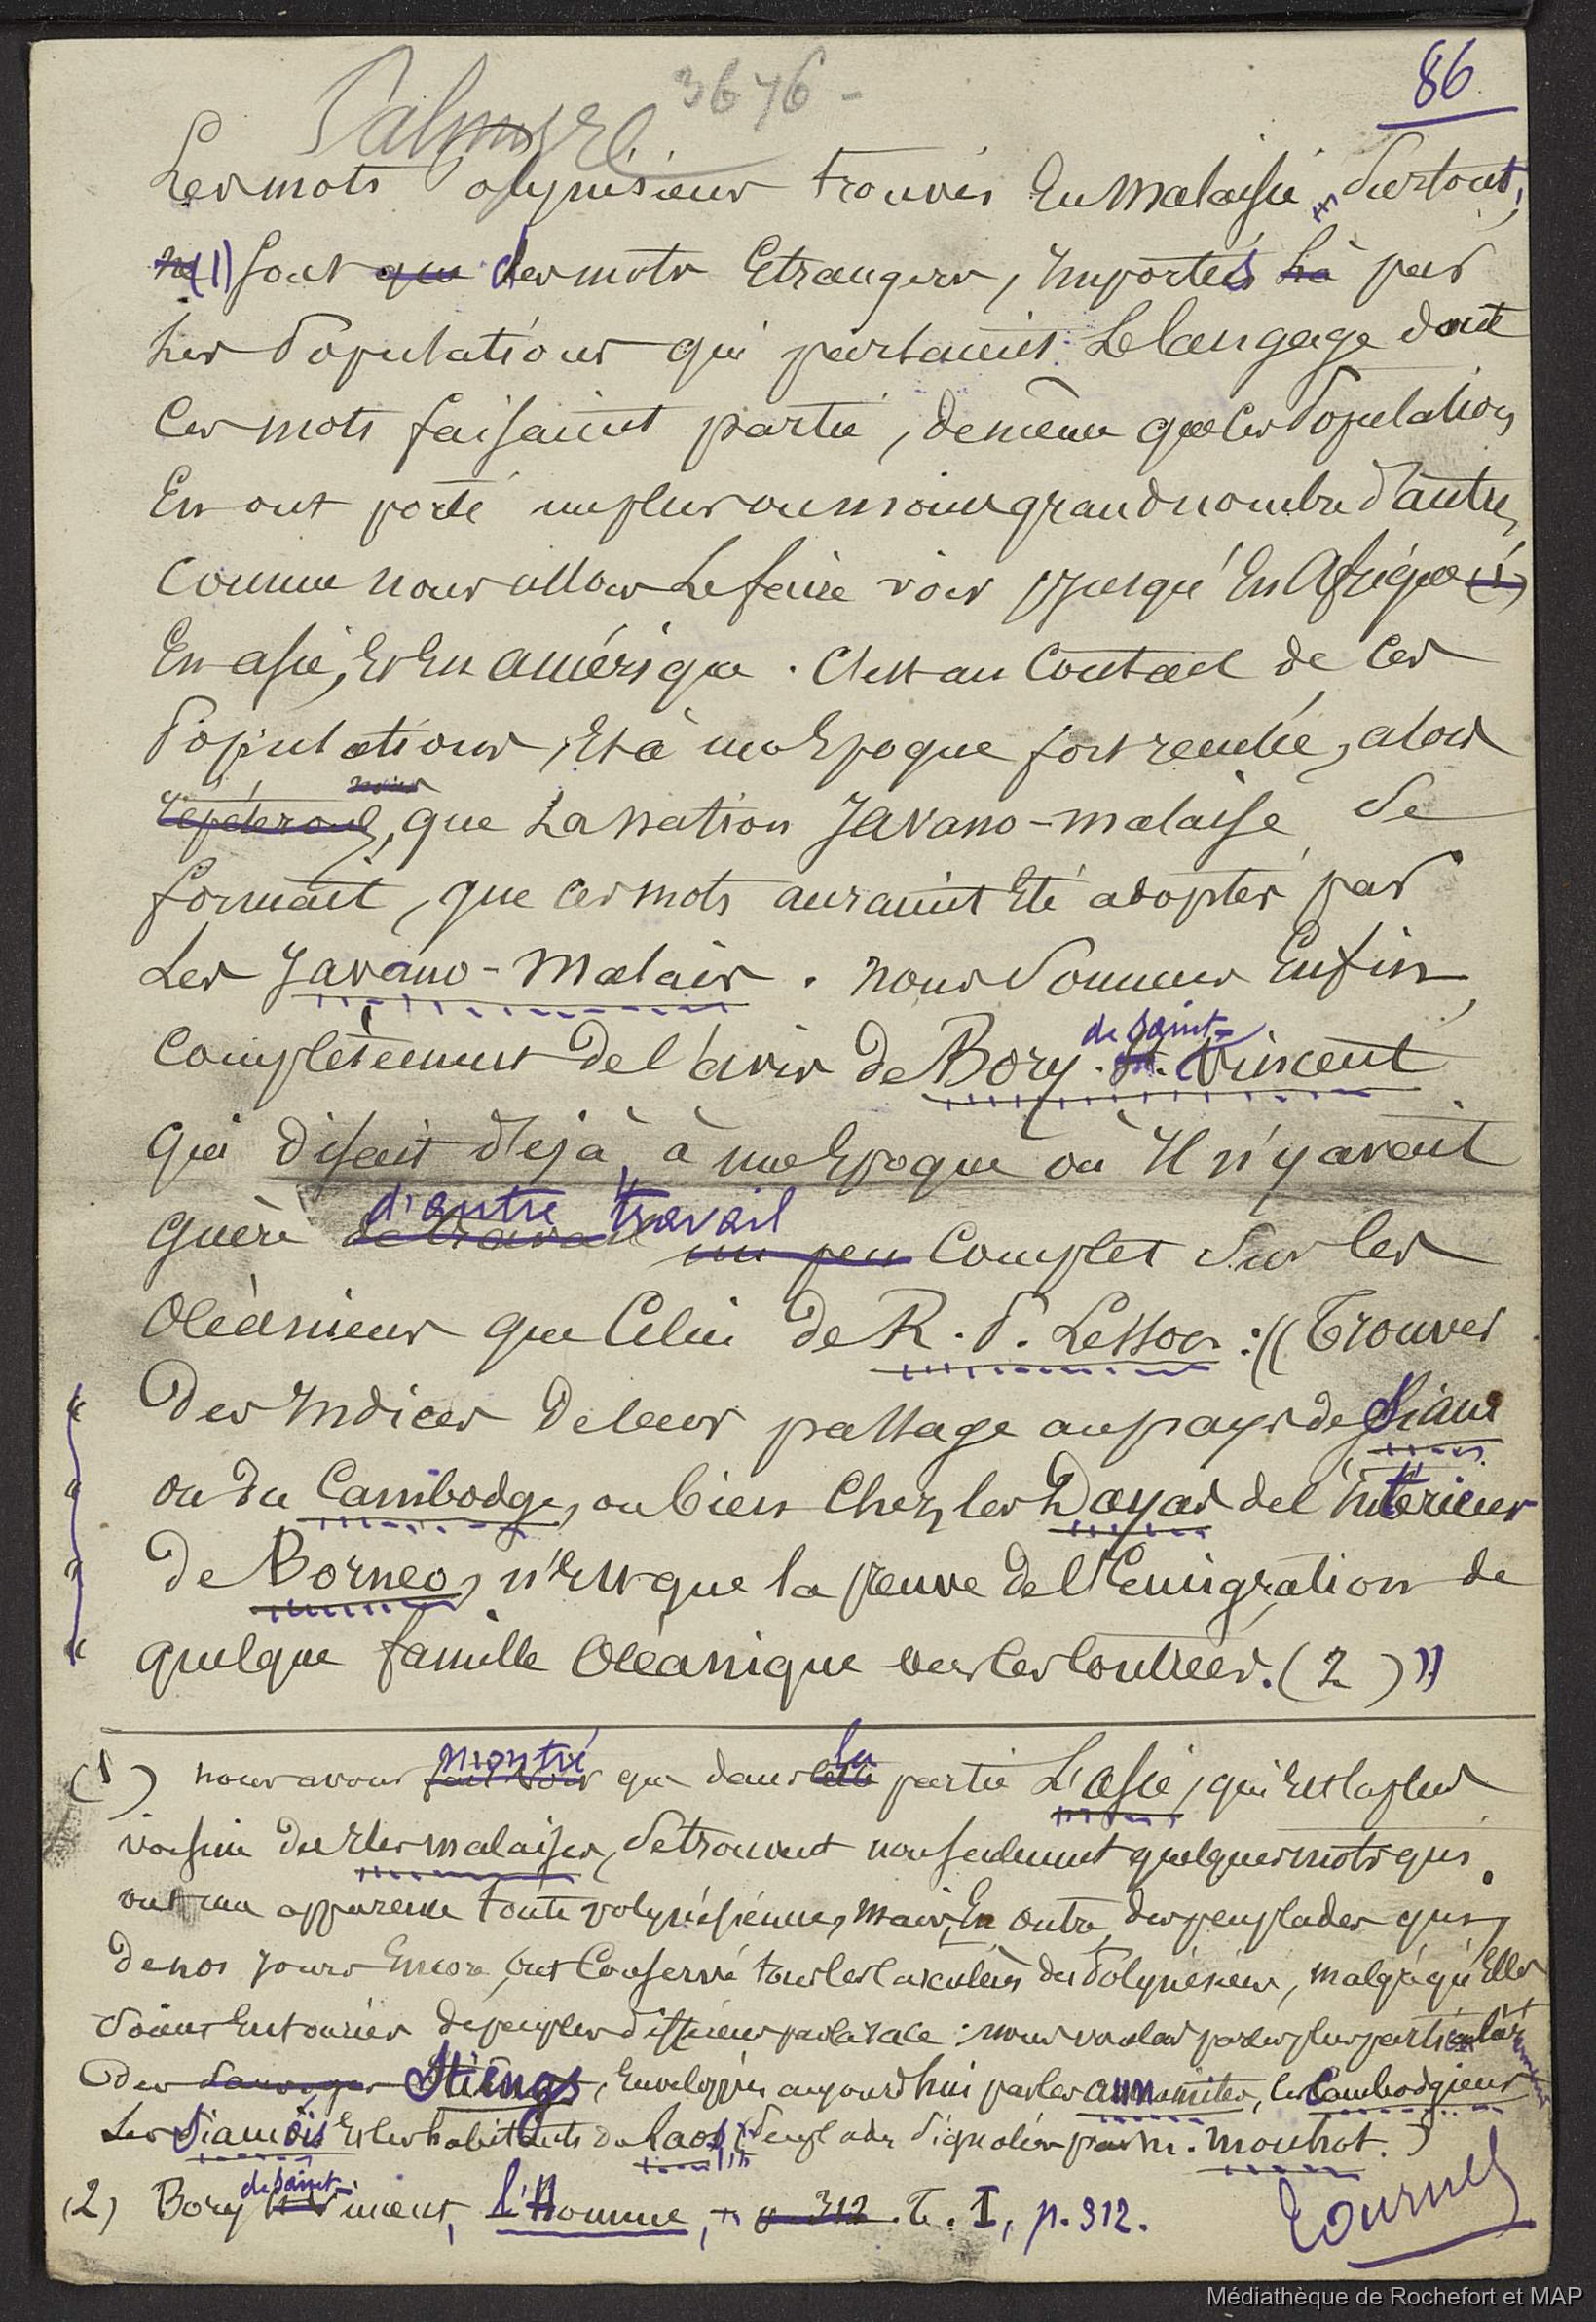 86
3676 -
Palmyre
Les mots Polynésiens trouvés En Malaisie, Surtout,
(1) sont des mots Etrangers, Importés par
Les Populations qui parlaient Le langage dont
Ces mots faisaient partie, de même que Ces Populations
En ont porté un plus ou moins grand nombre d'autres,
Comme nous allons Le faire voir jusqu'En Afrique,
En asie, Et En amérique. C'est au Contact de Ces
Populations, Et à une Epoque fort reculée, alors
que La nation Javano-malaise Se
formait, que ces mots auraient Eté adoptés par
Les Javano-Malais. nous Sommes Enfin,
Complètement De l'avis de Bory de Saint-Vincent
qui disait déjà, à une Epoque où Il n'y avait
guère d'autre travail Complet Sur les
Océaniens que Celui de R. P. Lesson : (( Trouver
Des Indices De leur passage au pays de Siam
ou du Cambodge, ou bien Chez les Dayas de l'Intérieur
De Borneo, n'Est que la preuve De l'Emigration de
quelque famille Océanique vers Ces Contrées. (2) ))
(1) nous avons montré que dans la partie L'asie, qui Est la plus
voisine des Iles malaises, Se trouvent non seulement quelques mots qui
ont une apparence toute polynésienne, mais, En outre, des peuplades qui,
De nos jours Encore, ont Conservé tous les Caractères des Polynésiens, malgré qu'Elles
Soient Entourées de peuples différents par la race : nous voulons parler plus particulièrement
Des Stiengs, Enveloppés aujourd'hui par les annamites, les Cambodgiens
Les Siamois Et les habitants du Laos (Peuplades Signalées par M. Mouhot.)
(2) Bory de Saint-Vincent, l'Homme, T. I, p. 312.
Tournez
Médiathèque de Rochefort et MAP